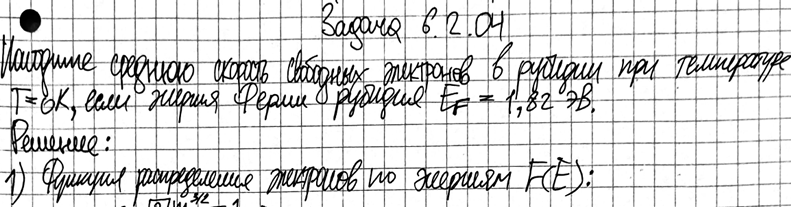 Задача 6.2.04
Найдите среднюю скорость свободных электронов в рубидии при температуре
T=0K, если энергия Ферми рубидия E_F = 1,82 эВ.
Решение:
1) Функция распределения электронов по энергиям F(E):